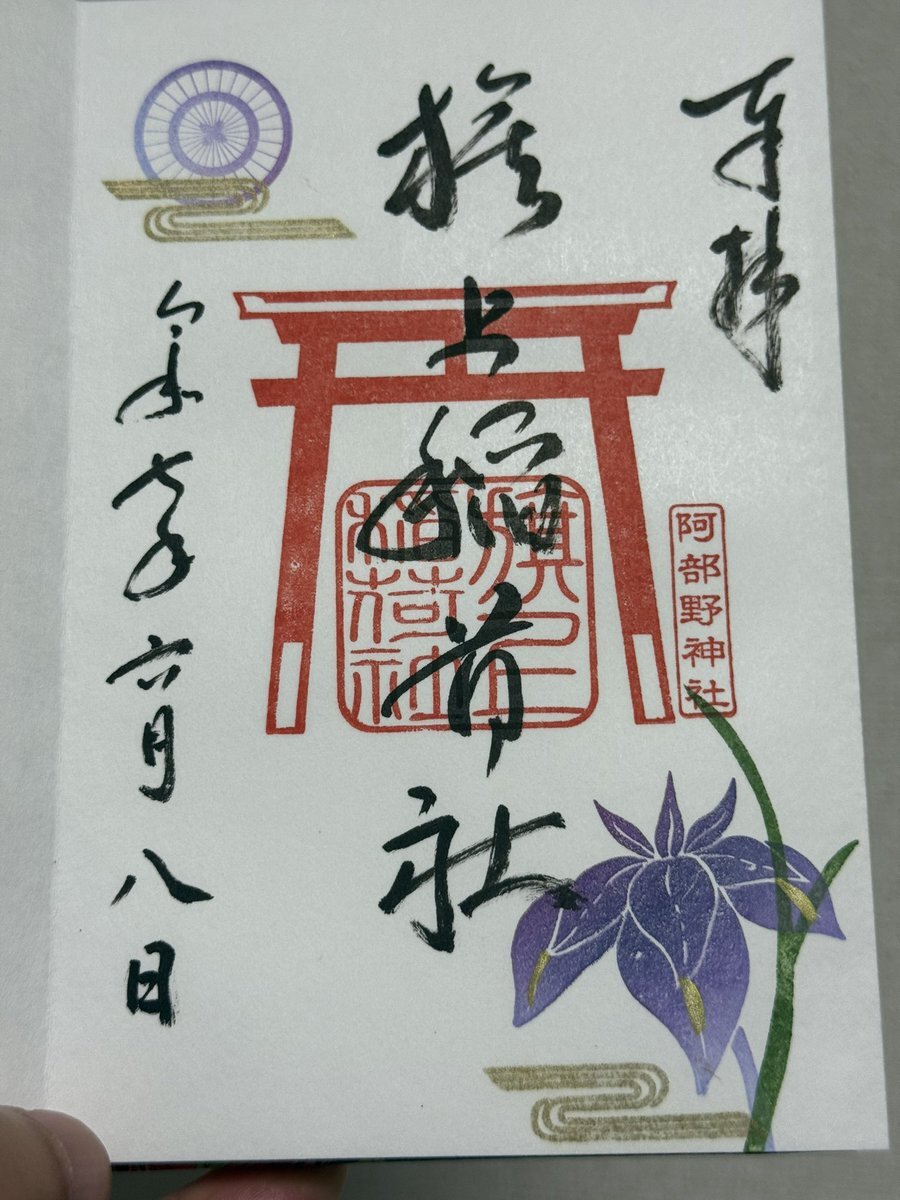 奉拝
阿部野神社
旗上稲荷社
旗上稲荷社
令和七年六月八日